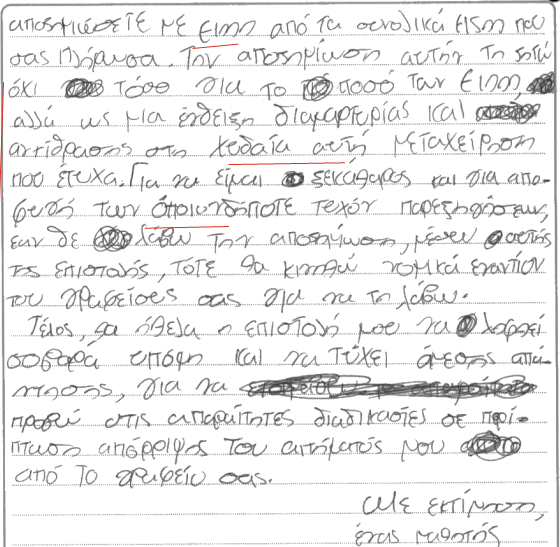 αποζημιώσετε με €150 από τα συνολικά €1500 που
σας πλήρωσα. Την αποζημίωση αυτήν τη ζητώ
όχι τόσο για το ποσό των €150,
αλλά ως μια ένδειξη διαμαρτυρίας και
αντίδρασης στη χυδαία αυτή μεταχείριση
που έτυχα. Για να είμαι ξεκάθαρος και για απο-
φυγή των όποιωνδήποτε τεχόν παρεξηγήσεων,
εαν δε λάβω την αποζημίωση, μέσω αυτής
της επιστολής, τότε θα κινηθώ νομικά εναντίον
του γραφείου σας για να τη λάβω.
Τέλος, θα ήθελα η επιστολή μου να ληφθεί
σοβαρά υπόψη και να τύχει άμεσης απά-
ντησης, για να
προβώ στις απαραίτητες διαδικασίες σε περί-
πτωση απόρριψης του αιτήματός μου
από το γραφείο σας.
Με εκτίμηση,
ένας μαθητής